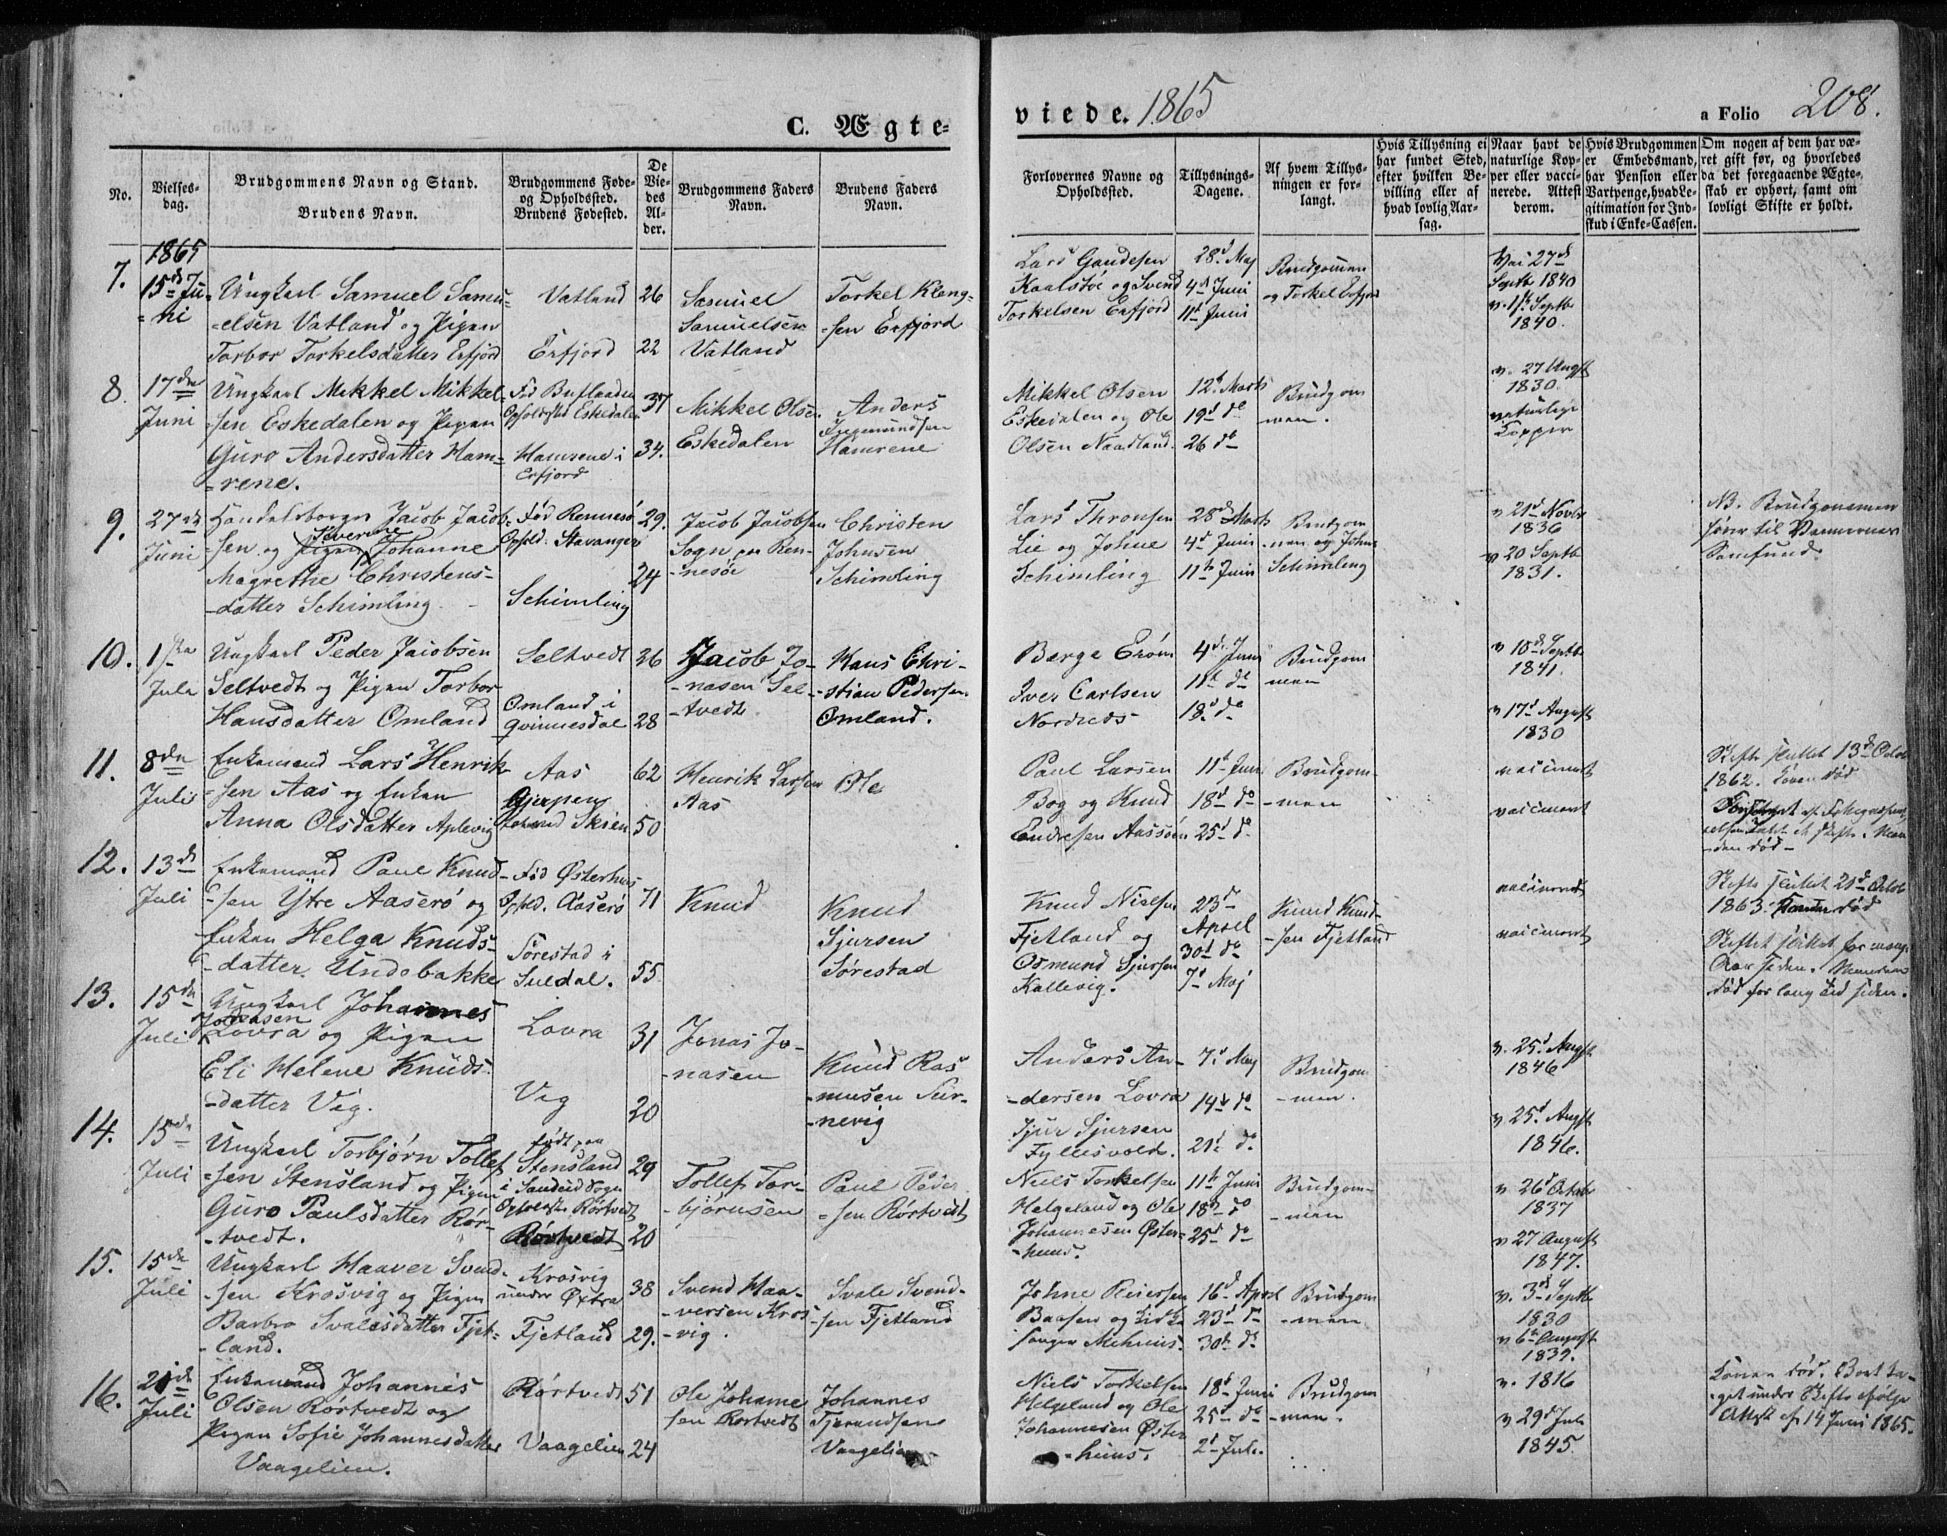 C. Ægte-
viede. 1865
a Folio 208.
No.
Vielses-
dag.
Brudgommens Navn og Stand.
Brudens Navn.
Brudgommens Føde-
og Opholdssted.
Brudens Fødested.
De
Vie-
des
Al-
der.
Brudgommens Faders
Navn.
Brudens Faders
Navn.
Forlovernes Navne og
Opholdssted.
Tillysnings-
Dagene.
Af hvem Tillys-
ningen er for-
langt.
Hvis Tillysning ei
har fundet Sted,
efter hvilken Be-
villing eller af
hvad lovlig Aar-
sag.
Naar havt de
naturlige Kop-
per eller vacci-
nerede. Attest
derom.
Hvis Brudgommen
er Embedsmand,
har Pension eller
Vartpenge, hvad Le-
gitimation for Ind-
skud i Enke-Cassen.
Om nogen af dem har væ-
ret gift før, og hvorledes
da det foregaaende Ægte-
skab er ophørt, samt om
lovligt Skifte er holdt.
7.
1865
15d Ju-
ni
Ungkarl Samuel Samu-
-elsen Vatland og Pigen
Torbor Torkelsdatter Erfjord
Vatland
Erfjord
26
22
Samuel
Samuelsen
Vatland
Torkel Kleng-
-sen Erfjord
Lars Gaudesen
Kaalstøe og Svend
Torkelsen Erfjord
28d Maj
4d Juni
11t Juni
Brudgommen
og Torkel Erfjord
Vac 27d
Septb 1840
v. 11t Septb
1840.
8
17de
Juni
Ungkarl Mikkel Mikkel-
-sen Eskedalen og Pigen
Guro Andersdatter Ham-
-rene.
Opholdssted Eskedalen
Hamrene i
Erfjord
37
34.
Mikkel Olsen
Eskedalen
Anders
Ingemundsen
Hamrene
Mikkel Olsen
Eskedalen og Ole
Olsen Naadland.
12t Marts
19d do
26 do
Brudgom
man.
v. 27 Augst
1830.
naturlige
Kopper
9.
27de
Juni
Handelsborger Jacob Jacob-
-sen og Pigen Johanne
Magrethe Christens-
-datter Schimling.
Fød Rennesø
Ophold. Stavanger
Schimling
29.
24
Jacob Jacobsen
Sogn paa Ren-
-nesøe
Christen
Johnsen
Schimling
Lars Thronsen
Lie og Johne
Schimling
28d Marts
4d Juni
11te Juni
Brudgom
-men og Johne
Schimling
v 21d Novbr
1836
v 20 Septb
1831.
NB. Brudgommen
hører til Vennernes
Samfund
10.
1ste
Jula
Ungkarl Peder Jacobsen
Seltvedt og Pigen Torbor
Hansdatter Omland
Seltvedt
Omland i
Qvinnesdal
26
28
Jacob Jo-
-nasen Sel-
-tvedt
Hans Chri-
-stian Pedersen
Omland.
Børge Erøen
Iver Carlsen
4d Juni
11te do
18d do
Brudgom
man
v 10d Septb
1841.
v 17d August
1830
11.
8de
Juli
Enkemand Lars Henrik-
-sen Aas og Enken
Anna Olsdatter Aplevig
Aas
Gjerpen
Skien
62
50
Henrik Larsen
Aas
Ole
Paul Larsen
Bog og Knud
Endresen Aasøen
11t Juni
18d do
25d do
Brudgom-
-man
vaccineret
vaccineret
Skifte sluttet 13d Octob
1862. Konen død
12.
13de
Juli
Enkemand Paul Knud-
-sen Ytre Aaserø og
Enken Helga Knuds-
-datter Undebakke
Fød Østerhus
Ophld. Aaserø
Sørestad i
Suldal.
71
55
Knud
Knud
Sjursen
Sørestad
Knud Nielsen
Fjetland og
Osmund Sjursen
Kallevig.
23d
April
30d do
7d Maj
Knud Knud-
-sen Fjetland
vaccineret
vaccineret
Skifte sluttet 21d Octob
1863. Konen død
Skiftet sluttet for mange
Aar siden. Manden
død for lang tid siden.
13.
15de
Juli
Ungkarl Johannes
Jonasen
Lovra og Pigen
Eli Helene Knuds-
-datter Vig.
Lovra
Vig
31
20
Jonas Jo-
-nasen
Knud Ras
-musen Sur-
-nevig
Anders An-
-dersen Lovra
Sjur Sjursen
7d Maj
14de do
21d do
Brudgom
-man.
v. 25d Augst
1846
v 25d Augst
1846.
14.
15de
Juli
Ungkarl Torbjørn Tollef-
-sen Stensland og Pigen
Guro Paulsdatter Rør-
-tvedt.
født paa
Stensland
i Sandeid Sogn
Opholdsted Rørtvedt
Rørtvedt
29
20
Tollef Tor-
-bjørnsen
Paul Peder
-sen Rørtvedt
Niels Torkelsen
Helgeland og Ole
Johannesen Øster-
-huus.
11te Juni
18de do
25d do
Brudgom-
-man
v 26d Octob
1837
v 27 August
1847.
15.
15de
Juli
Ungkarl Haaver Svend-
-sen Krosvig og Pigen
Barbro Svalesdatter Fjet-
-land.
Krosvig
under Øxtra
Fjetland
38
29.
Svend Haa-
-versen Kros
-vig.
Svale Svend-
-sen Fjetland
Johne Reiersen
16d April
23d do
30te do
Brudgom
-man
v. 3d Septb
1830
v 6te August
1839.
16.
21de
Juli
Enkemand Johannes
Olsen Rørtvedt og
Pigen Sofie Johannesdatter
Vaagelien.
Rørtvedt
Vaagelien
51
24
Ole Johanne
sen Rørtvedt
Johannes
Tjerandsen
Vaagelien
Niels Torkelsen
Helgeland og Ole
Johannesen Øster
-huus.
18d Juni
25d do
2d Juli.
Brudgom
-man.
v. 1816
v 29d Jule
1845
Konen død. Bort ta-
-get under Skifte ifølge
Attest af 14 Juni 1865.